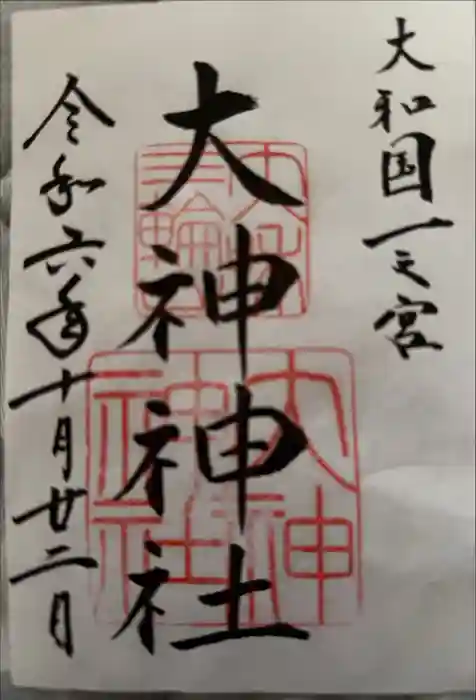 大和国一之宮
大神神社
令和六年十月廿二日
大神神社